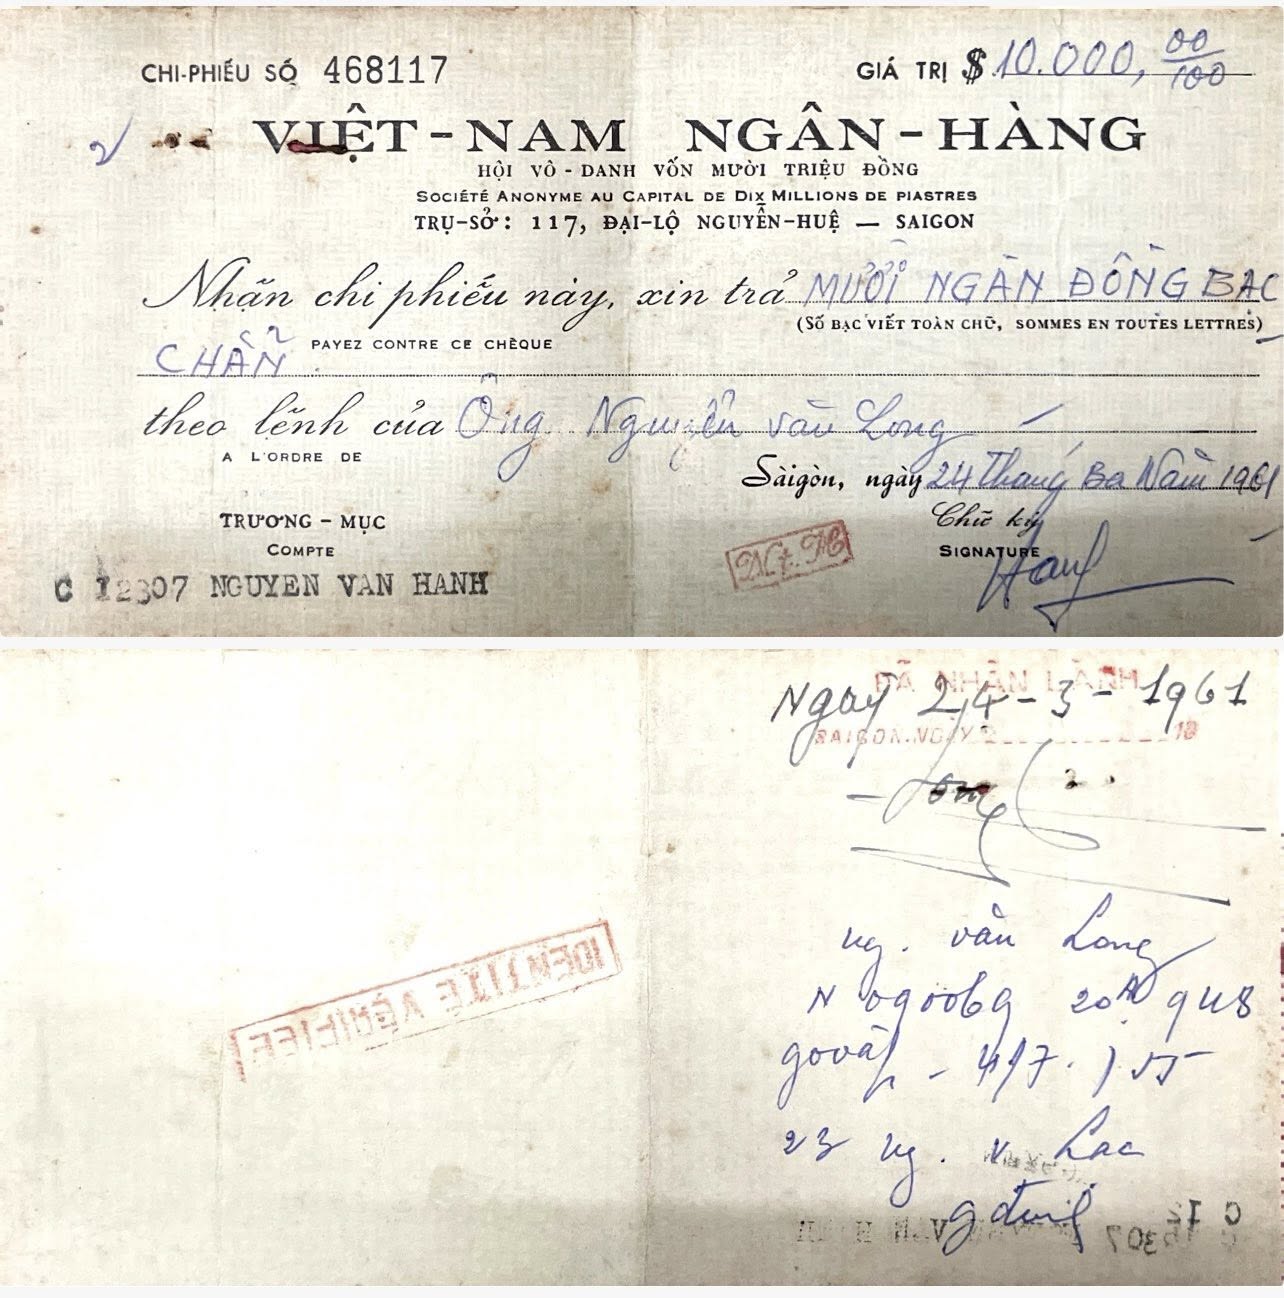 CHI-PHIẾU SỐ 468117
GIÁ TRỊ $ 10.000, 00/100
VIỆT-NAM NGÂN-HÀNG
HỘI VÔ-DANH VỐN MƯỜI TRIỆU ĐỒNG
SOCIÉTÉ ANONYME AU CAPITAL DE DIX MILLIONS DE PIASTRES
TRỤ-SỞ: 117, ĐẠI-LỘ NGUYỄN-HUỆ — SAIGON
Nhận chi phiếu này, xin trả MƯỜI NGÀN ĐỒNG BẠC
(SỐ BẠC VIẾT TOÀN CHỮ, SOMMES EN TOUTES LETTRES)
PAYEZ CONTRE CE CHÈQUE
CHẴN
theo lệnh của Ông Nguyễn văn Long
A L'ORDRE DE
Sàigòn, ngày 24 Tháng Ba Năm 1961
TRƯƠNG-MỤC
COMPTE
Chữ ký
SIGNATURE
C 12307 NGUYEN VAN HANH
ĐÃ NHẬN LÃNH
Ngày 24-3-1961
SAIGON, NGÀY 19
Long
IDENTITÉ VÉRIFIÉE
ng. văn Long
N 090069 20A 948
govấp - 4/7.
23 ng. v. Lac